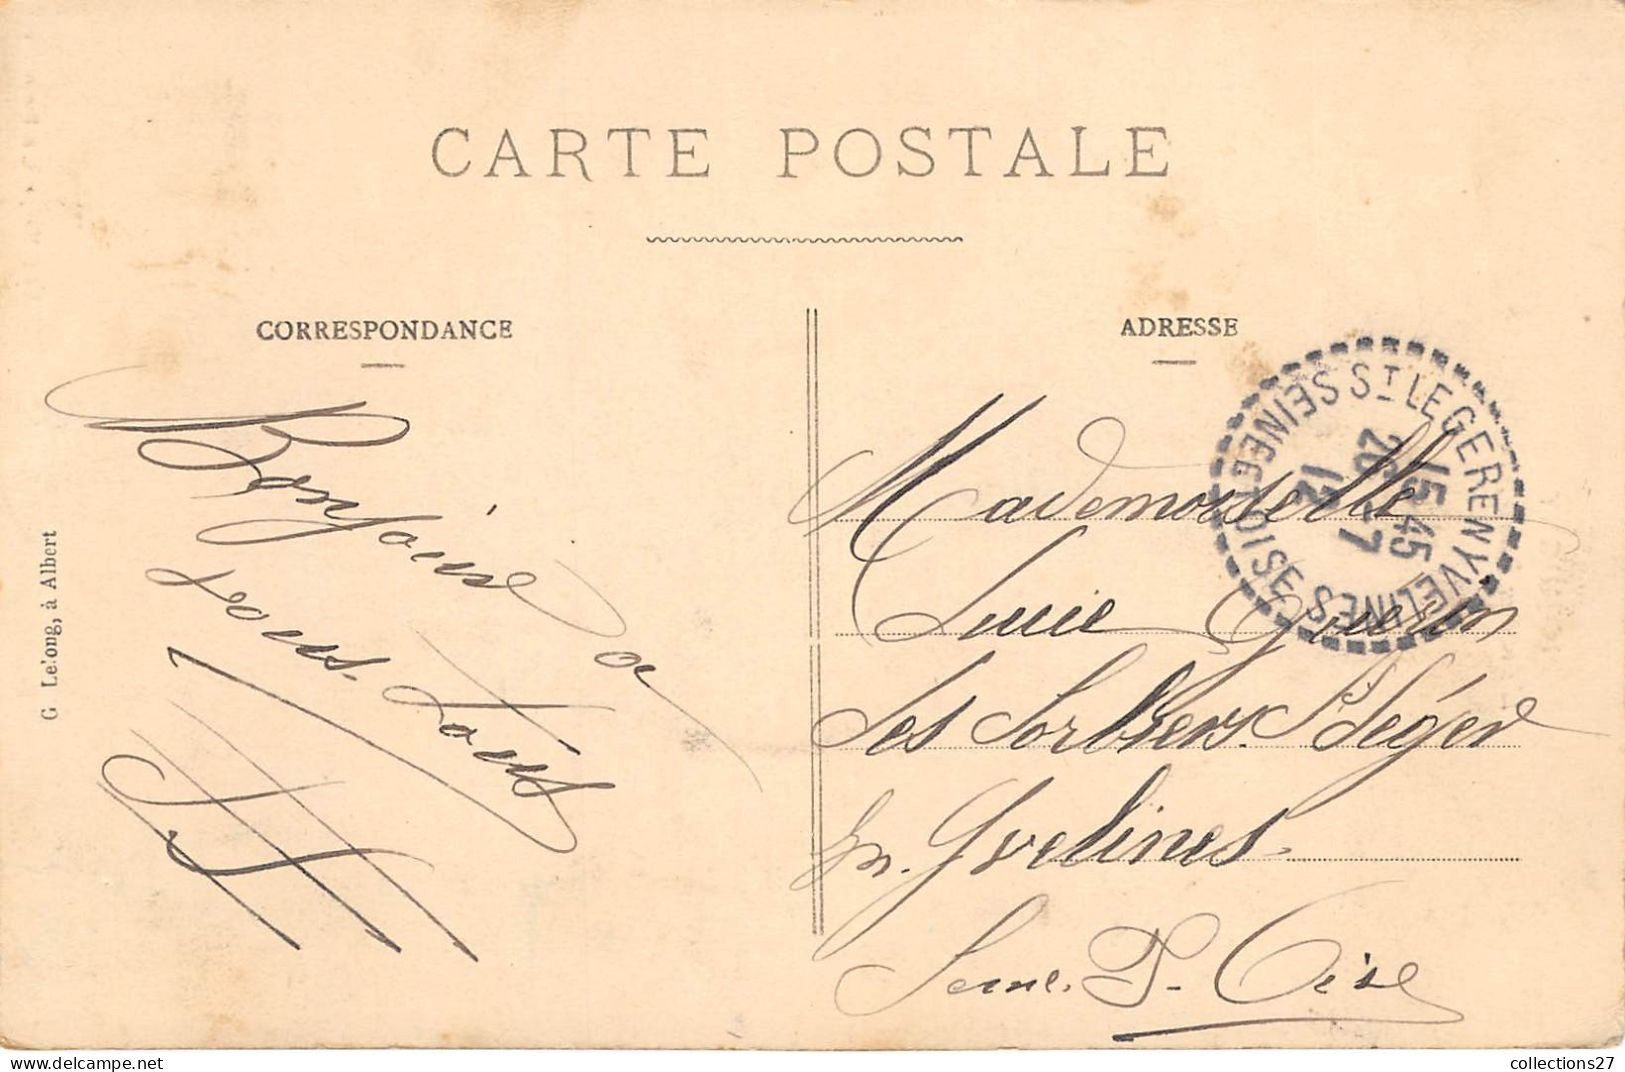 CARTE POSTALE
CORRESPONDANCE
ADRESSE
G Lelong, à Albert
Bonjour à
vous tous
Mademoiselle
Lucie Guerin
Les Sorbiers St Léger
En Yvelines
Seine & Oise
ST LEGER EN YVELINES
SEINE ET OISE
15 45
26 - 7
12
collections27